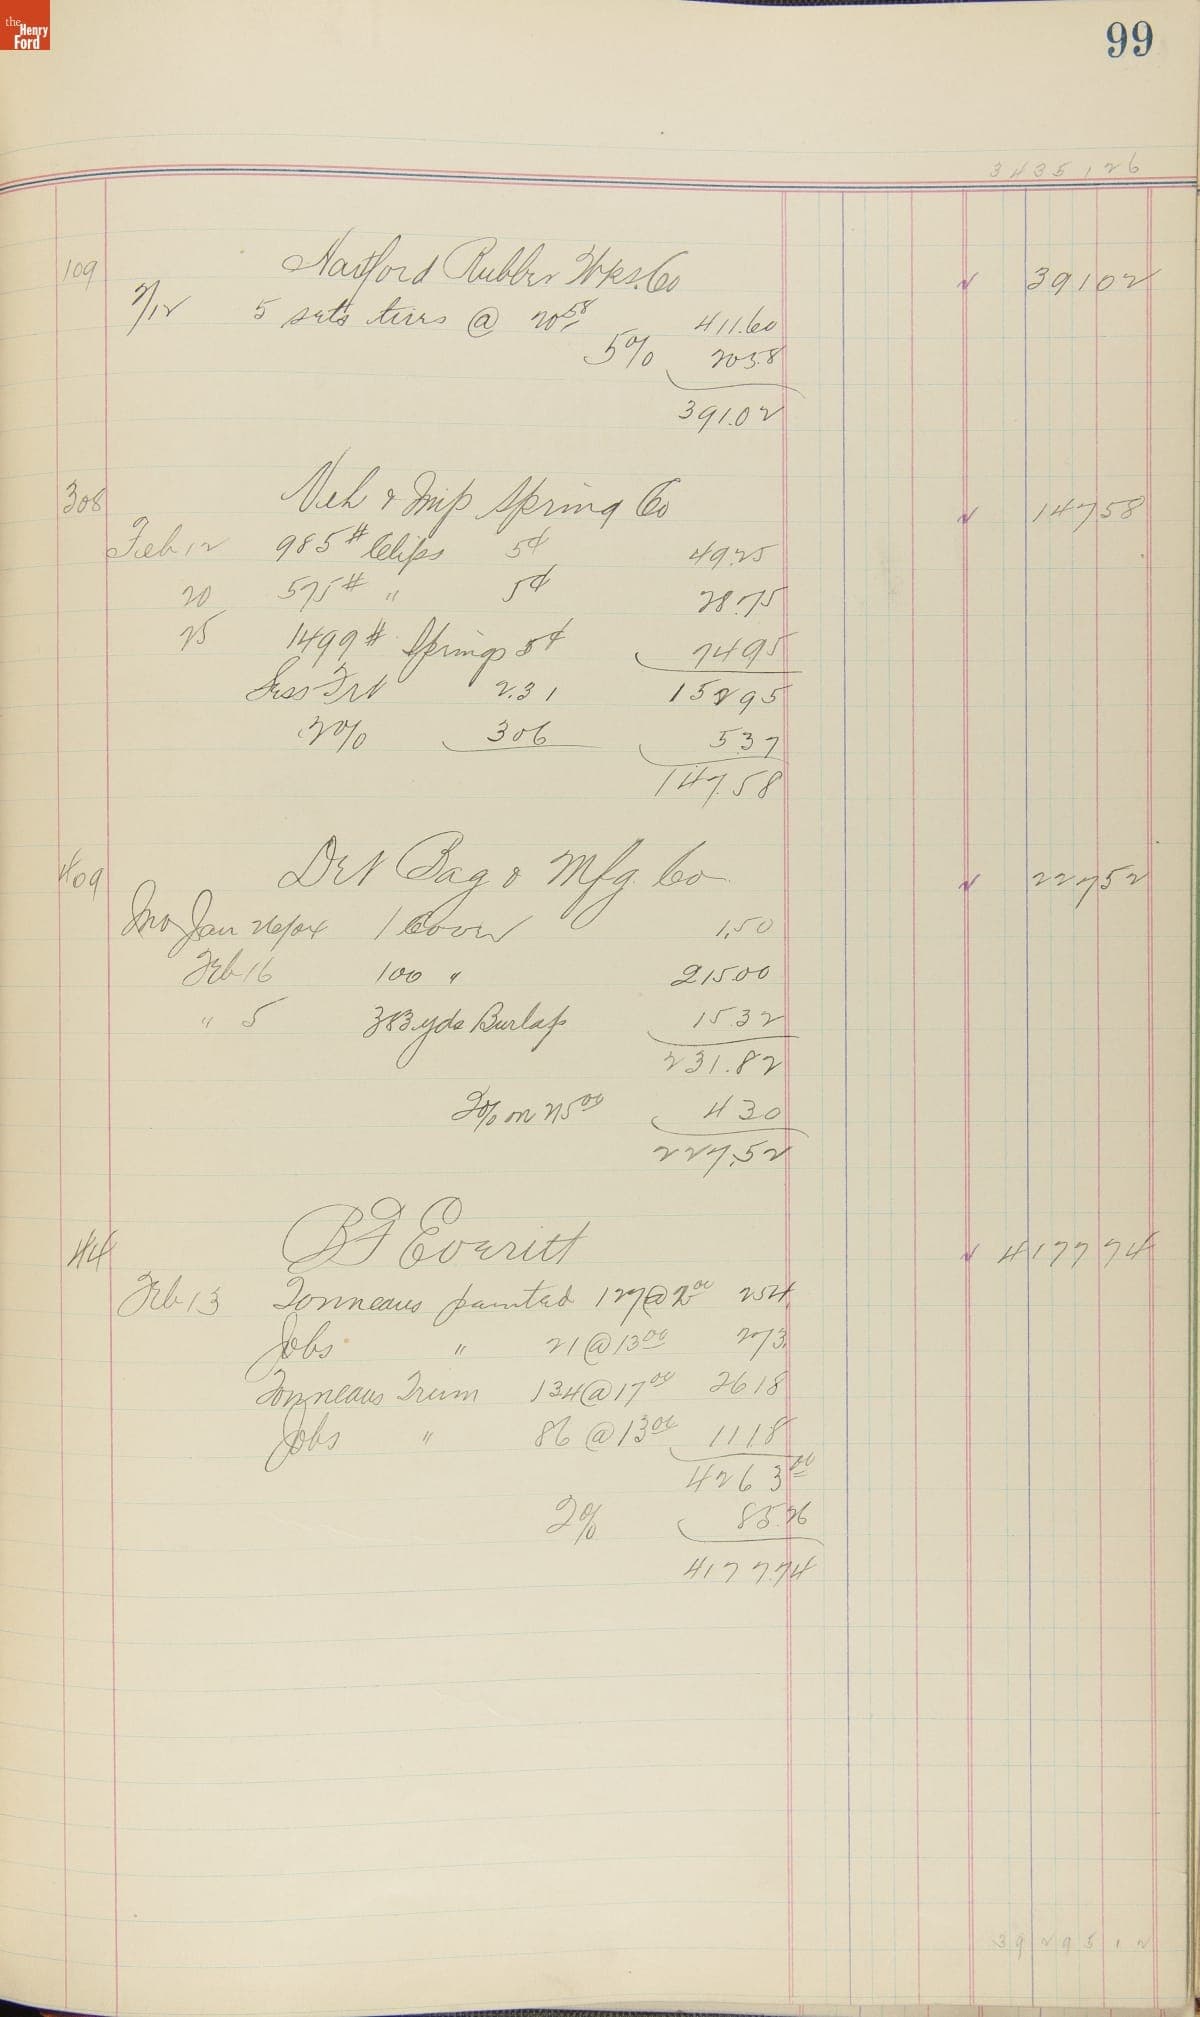 the Henry Ford
99
34351 26
109 Hartford Rubber Wks. Co 391 02
2/12 5 sets tires @ 20 58 411.60
5% 20 58
391.02
308 Veh & Imp Spring Co 147 58
Feb 12 985 # Clips 5¢ 49.25
20 575 # " 5¢ 28.75
25 1499 # Springs 5¢ 74 95
Less Frt 2.31 152 95
2% 306 5 37
147.58
409 Det Bag & Mfg. Co 227 52
Jan 1 Cover 1.50
Feb 16 100 " 215 00
" 5 383 yds Burlap 15 32
231.82
2% on 215 00 4 30
227.52
44 BF Everitt 4177 74
Feb 13 Tonneaus painted 127 @ 2 00 254
Jobs " 21 @ 13 00 273
Tonneaus Trim 154 @ 17 00 2618
Jobs " 86 @ 13 00 1118
4263 00
2% 85.26
4177.74
39295 12